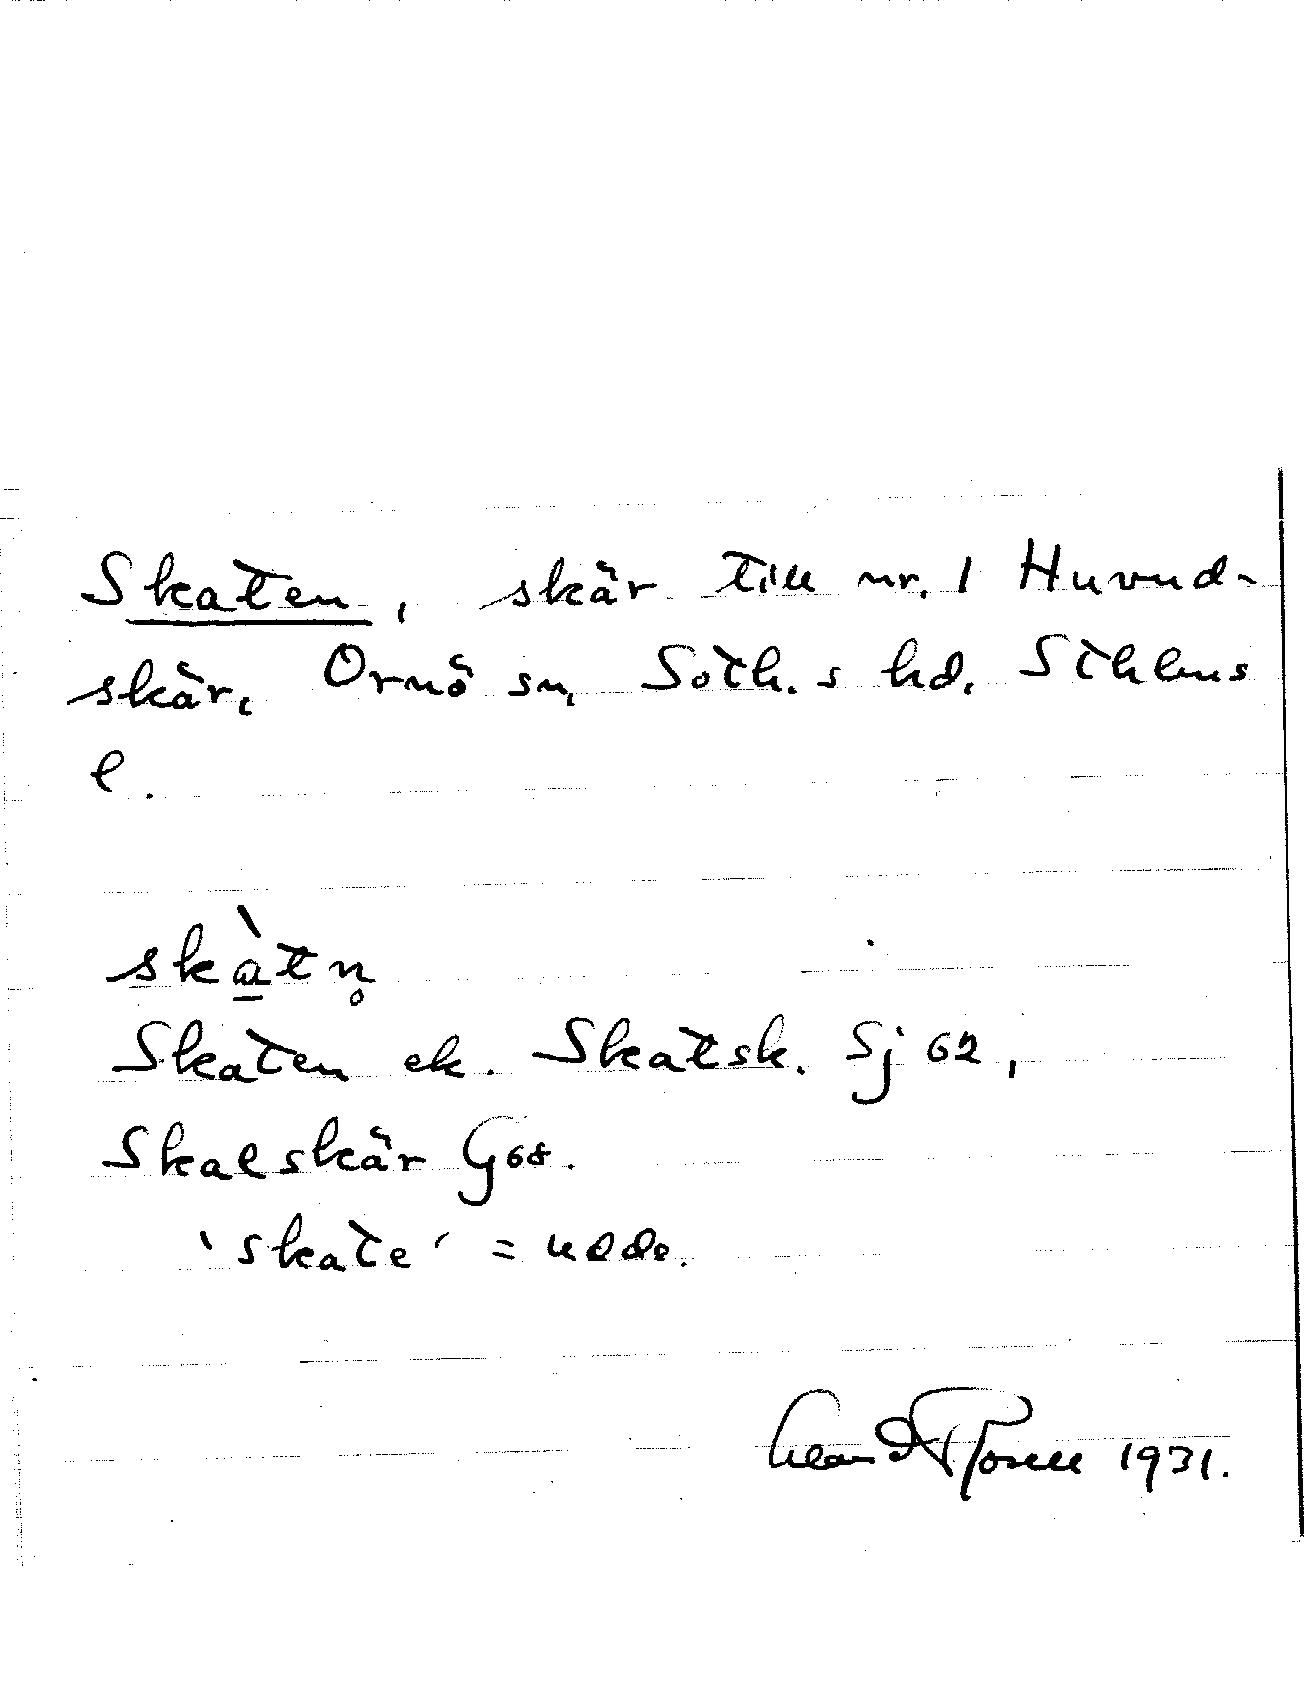 Skaten, skär till nr. 1 Huvud-
skär, Ornö sn, Soth.s hd. Sthlms
l.
skàtn̥
Skaten ek. Skatsk. Sj 62,
Skalskär G68.
'skate' = udde.
1931.